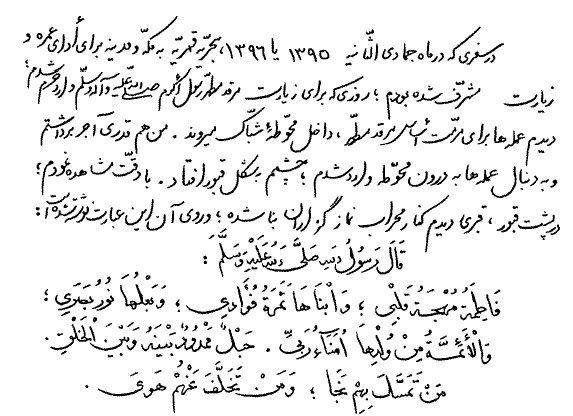 در سفری که در ماه جمادی الثانیه ۱۳۹۵ یا ۱۳۹۶، هجریّه قمریّه به مکّه و مدینه برای أدای عمره و
زیارت مشرّف شده بودم؛ روزی که برای زیارت مرقد مطهّر رسول اکرم صلّی الله علیه و آله و سلّم وارد حرم شدم؛
دیدم عمله‌ها برای مرمّت أساس مرقد مطهّر، داخل محوّطهٔ شبّاک میروند. من هم قدری آجر برداشتم
و به دنبال عمله‌ها به درون محوّطه وارد شدم؛ چشمم به شکل قبور افتاد. با دقّت مشاهده نمودم؛
در پشت قبور، قبری دیدم کنار محراب نماز گزاردن بنا شده؛ و روی آن این عبارت نوشته شده است:
قَالَ رَسُولُ اللهِ صَلَّى اللهُ عَلَيْهِ وَسَلَّمَ:
فَاطِمَةُ مُهْجَةُ قَلْبِي؛ وَابْنَاهَا ثَمَرَةُ فُؤَادِي؛ وَبَعْلُهَا نُورُ بَصَرِي؛
وَالْأَئِمَّةُ مِنْ وُلْدِهَا أُمَنَاءُ رَبِّي. حَبْلٌ مَمْدُودٌ بَيْنَهُ وَبَيْنَ الْخَلْقِ.
مَنْ تَمَسَّكَ بِهِمْ نَجَا؛ وَمَنْ تَخَلَّفَ عَنْهُمْ هَوَى.